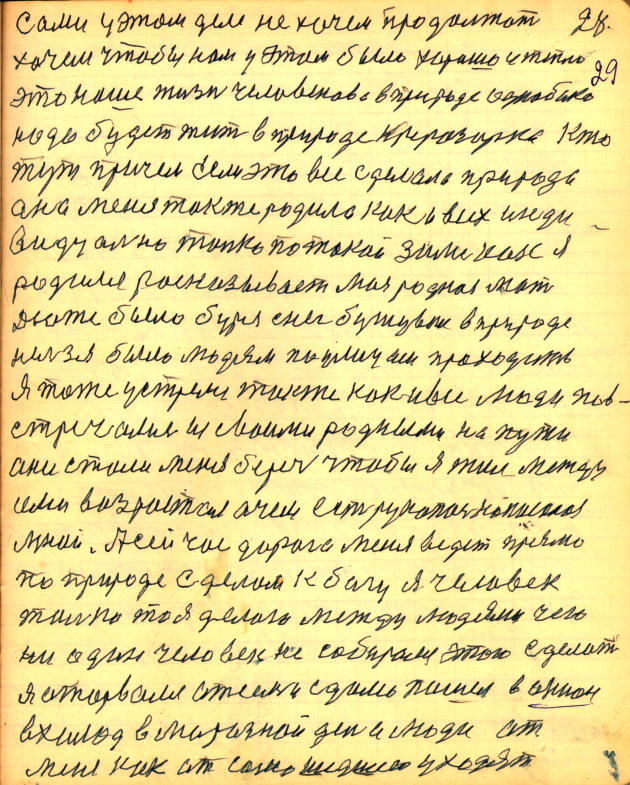 сами у этом деле не хочем продолжат 28.
хочем чтобы нам у этом было хорошо и тепло 29
это наше жизн человекова в природе
надо будет жит в природе Кто
тут причем если это все сделала природа
ана меня также родила как и всих люди
Видуално толко по такой зиме как я
родился росказывает моя родная мат
даже было буря снег бушувал в природе
нелзя было людям по улицам проходить
Я тоже устрели также как и все люди пов-
стречалис и своими родными на пути
ани стали меня береч чтобы я жил между
ими возростал очем ест рукопоя написоноя
мной. А сейчас дорога меня ведет прямо
по природе с делом к богу я человек
толко то я делаю между людями чего
ни один человек не собирался этого сделат
я оторвался от семи с дома пошел в
в холод в морозной ден а люди от
меня как от сошедшего уходят